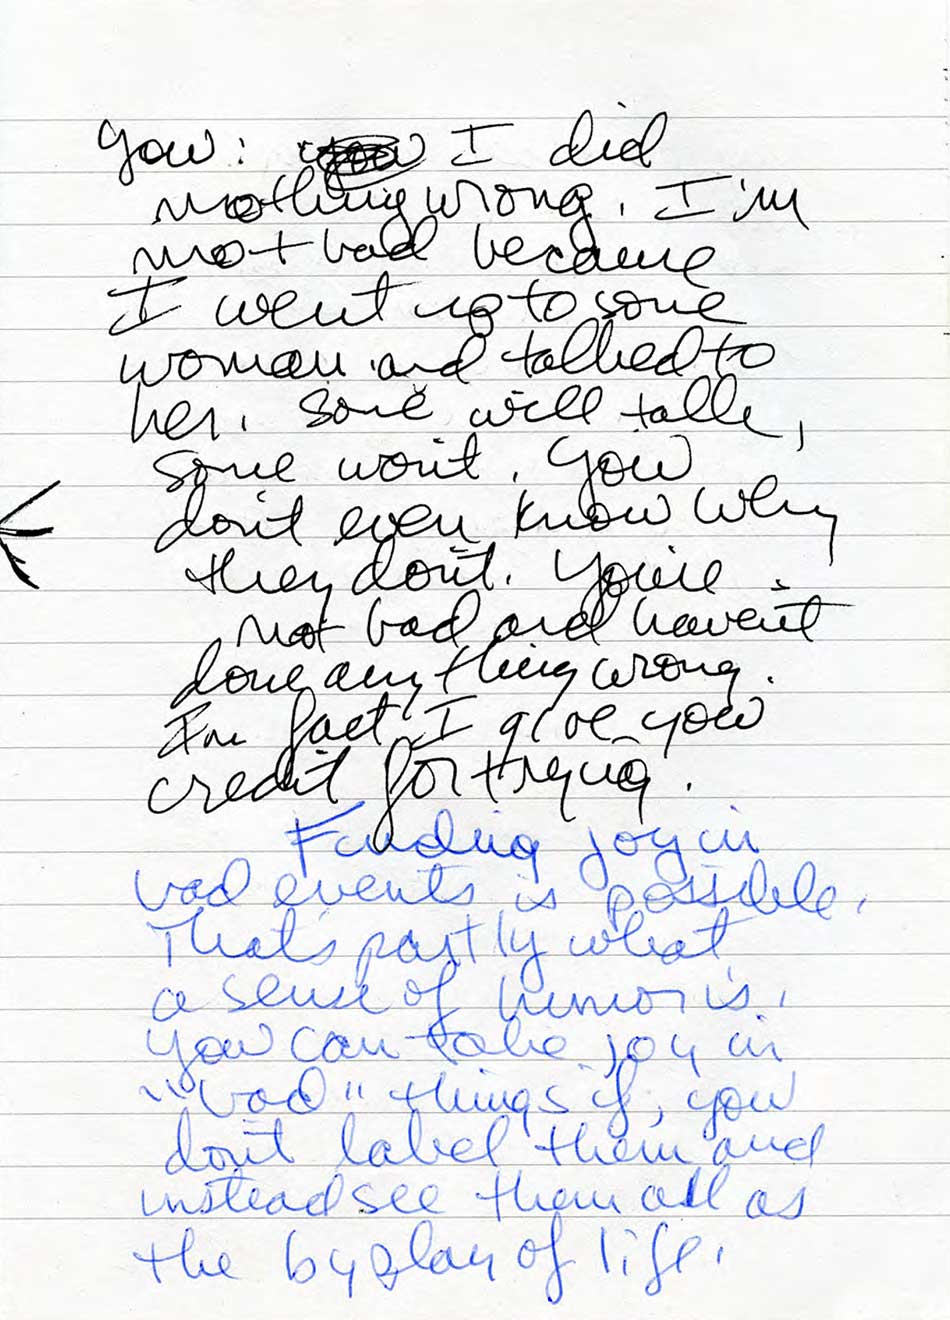 You: I did
nothing wrong. I'm
not bad because
I went up to some
woman and talked to
her. Some will talk,
some won't. You
don't even know why
they don't. You're
not bad and haven't
done anything wrong.
In fact, I give you
credit for trying.
Finding joy in
bad events is possible.
That's partly what
a sense of humor is.
You can take joy in
"bad" things if, you
don't label them and
instead see them all as
the byplay of life.